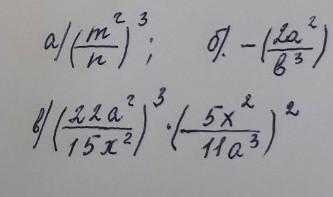 а) (m²/n)³; б). −(2a²/b³)
в) (22a²/15x²)³ · (−5x²/11a³)²